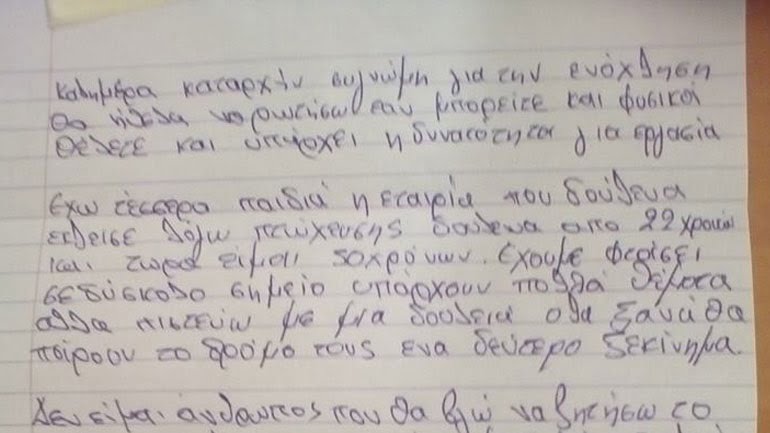 καλημέρα καταρχήν συγνώμη για την ενόχληση
θα ήθελα να ρωτήσω εαν μπορείτε και φυσικά
θέλετε και υπάρχει η δυνατότητα για εργασία
Εχω τέσσερα παιδιά η εταιρία που δούλευα
εκλεισε λόγω πτώχευσης δούλευα απο 22 χρονών
και τωρα είμαι 50χρόνων. Εχουμε φτάσει
σε δύσκολο σημείο υπάρχουν πολλά θέματα
αλλα πιστεύω με μια δουλεια ολα ξανά θα
πάρουν το δρόμο τους ενα δεύτερο ξεκίνημα.
Δεν είμαι άνθρωπος που θα βγώ να ζητήσω το